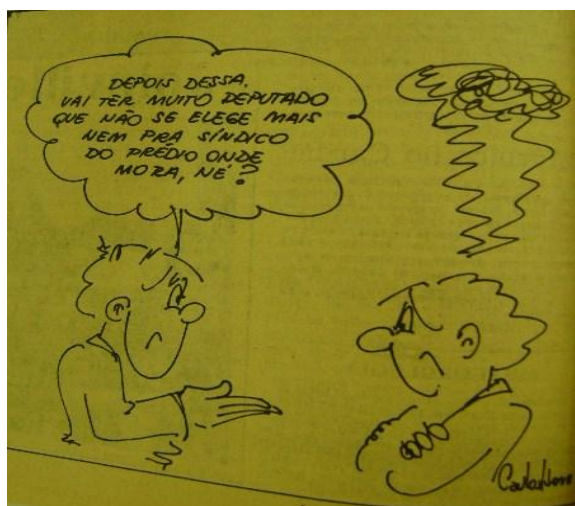 DEPOIS DESSA,
VAI TER MUITO DEPUTADO
QUE NÃO SE ELEGE MAIS
NEM PRA SÍNDICO
DO PRÉDIO ONDE
MORA, NÉ?